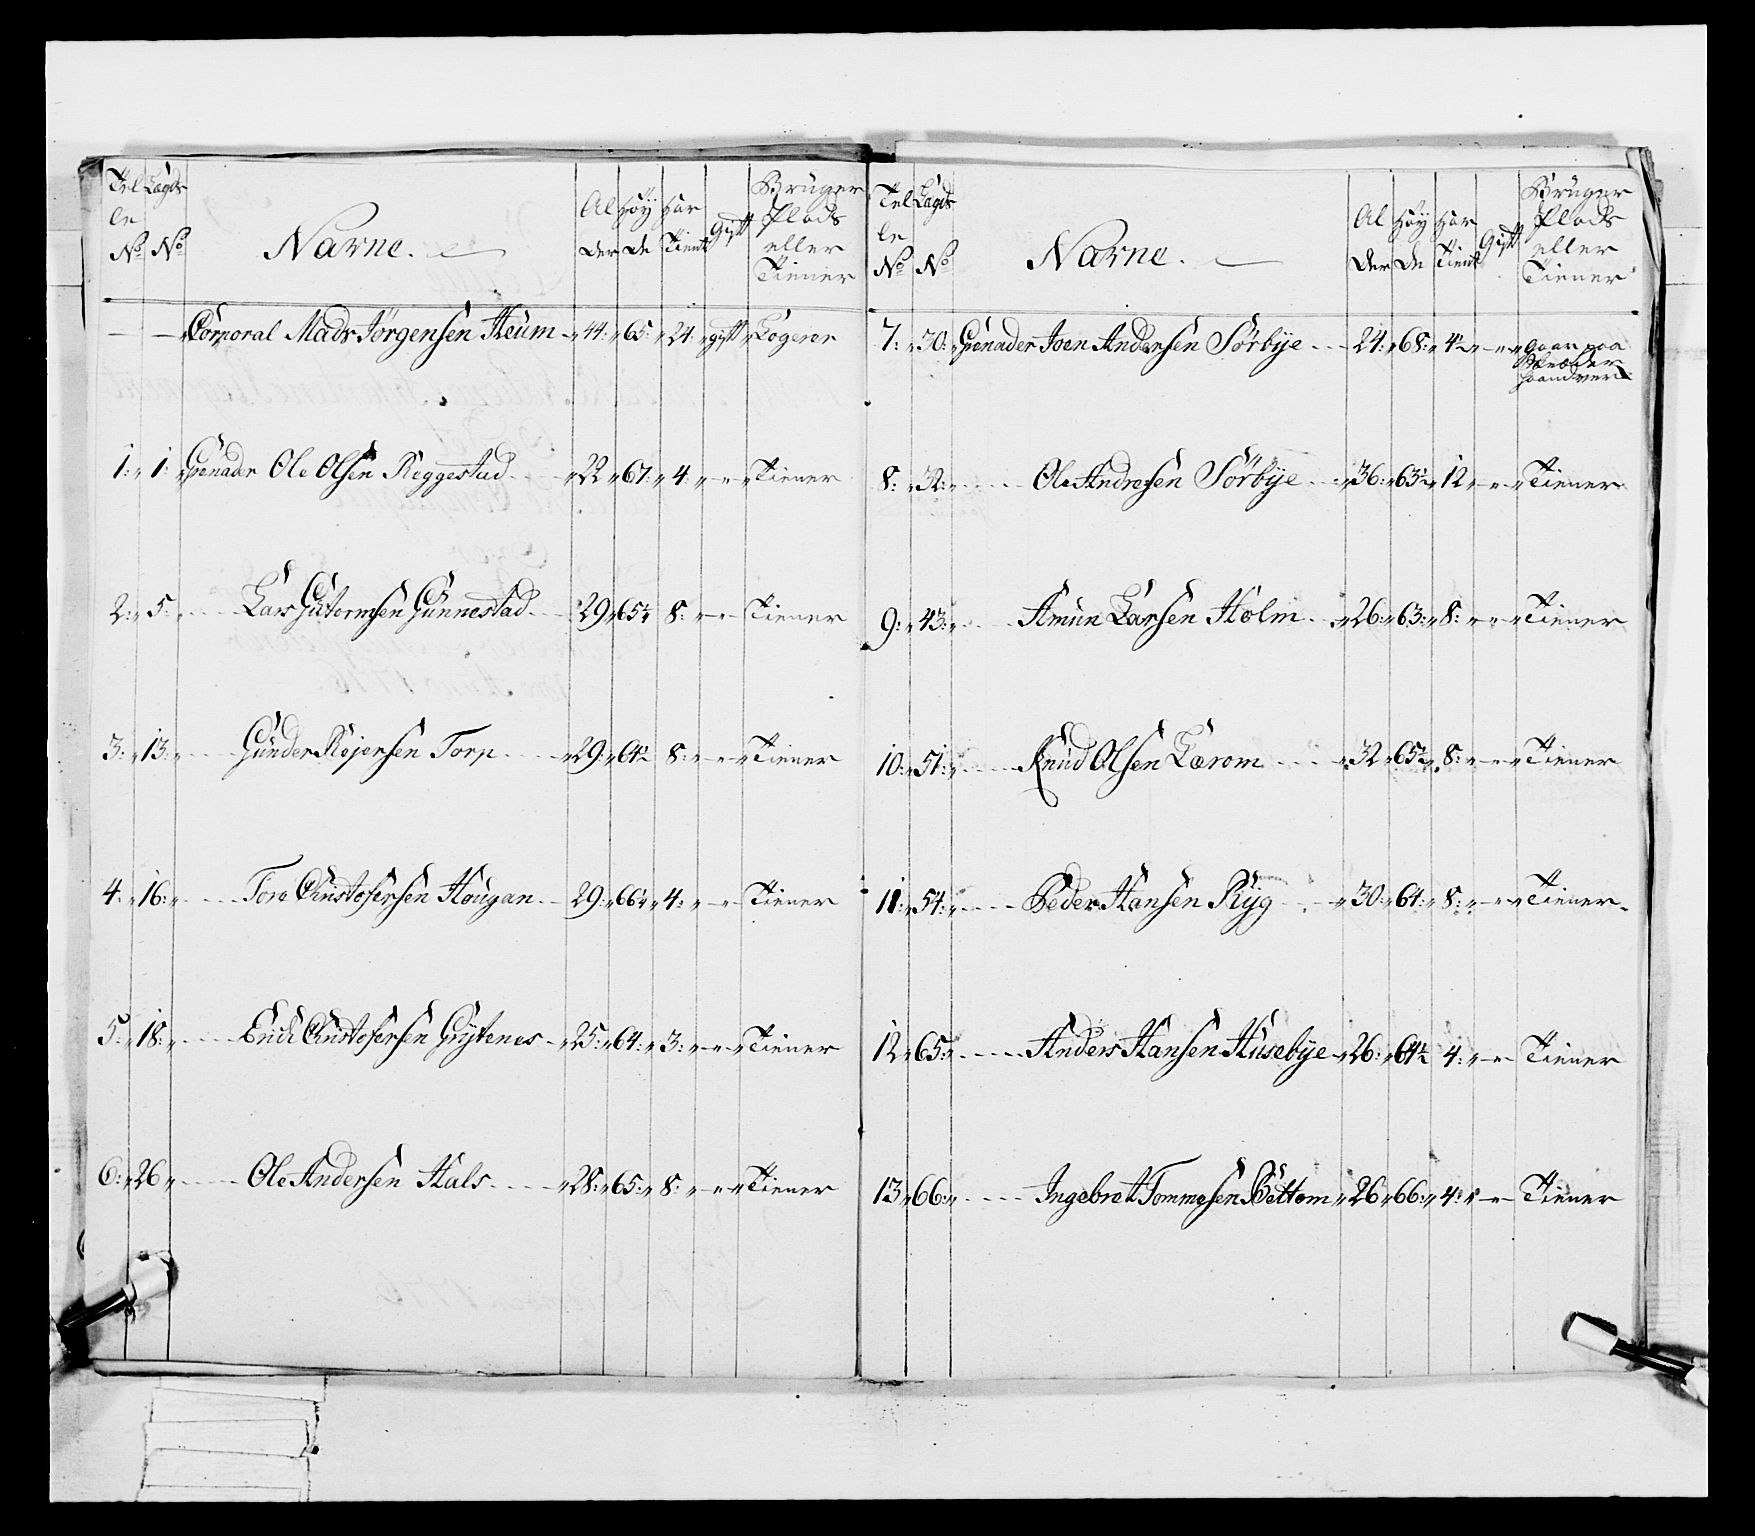 Tel Lægds
le
No No
Navne.
Al Høy Har
der de Tient
Gift
Brüger
Plads
eller
Tiener
Corporal Mads Jörgensen Heüm 44: 65: 24: gift Logerer
1: 1: Grenader Ole Olsen Reggestad 22 67: 4: Tiener
2: 5: Lars Gütormsen Günnestad 29 65½ 8: Tiener
3: 13: Günder Rejersen Torp 29: 64½ 8: Tiener
4: 16: Tore Christofersen Hougan 29: 66½ 4: Tiener
5: 18: Erich Christofersen Grytenes 25: 64: 3: Tiener
6: 26 Ole Andersen Hals 28: 65: 8: Tiener
Tel Lægds
le
No No
Navne.
Al Høy Har
der de Tient
Gift
Brüger
Plads
eller
Tiener
7: 30: Grenader Joen Andersen Sörbye 24: 68: 4 gaar paa
haandverk
8: 32: Ole Andresen Sörbye 36: 63½ 12 Tiener
9: 43: Amün Larsen Holm 26: 63: 8: Tiener
10: 51: Knüd Olsen Lærom 32 65½ 8: Tiener
11: 54: Peder Hansen Ryg 30: 64: 8: Tiener
12 65: Anders Hansen Hüsebye 26: 64½ 4: Tiener
13 66: Ingebret Tommesen Bottom 26 66: 4: Tiener